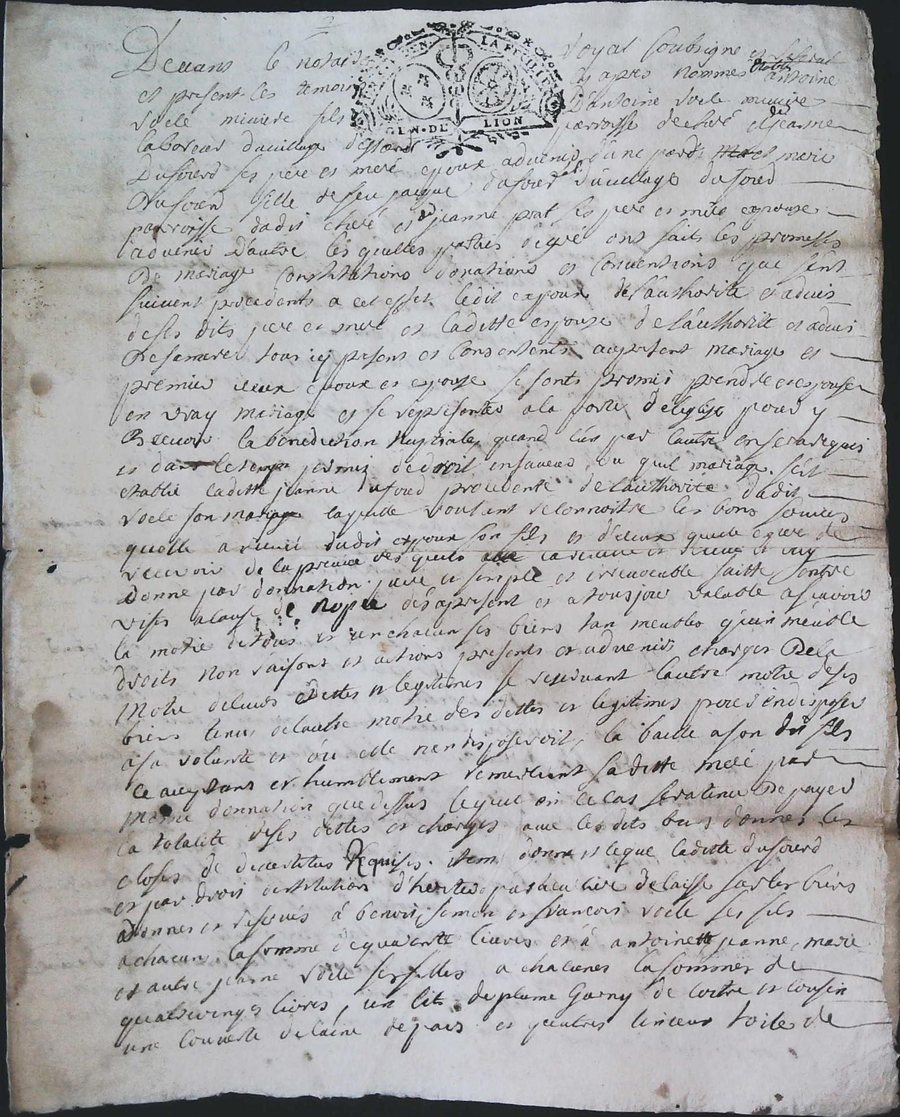 Devant le notaire royal soubsigné
et présent les temoins cy apres nommes Antoine
GEN. DE LION
LA FEUILLE
Voile miniere fils d'Antoine Voile miniere
laboreur du village parroisse de chéré et jeanne
Dufourd ses pere et meré epoux advenir d'une part et marie
Dufourd fille de feu jacque dufourd du village dufourd
parroisse dudit chéré et jeanne prat ses pere et mere epouse
advenir d'autre les quelles parties de gré ont fait les promesses
de mariage constitutions donations et conventions que sent
suivent procedents a cet effet ledit epoux de l'authorité et advis
de ses dits pere et mere et laditte epouse de l'authorité et advis
de sa mere tous icy presens et consentents au present mariage et
premier iceux epoux et epouse se sonts promis prendre et epouser
en vray mariage et se représenter a la porte de leglise pour y
recevoir la benediction nuptiale quand l'un par l'autre en sera requis
et dans le temps permis de droit en faveur du quel mariage s'est
etablie laditte jeanne dufourd procedente de l'authorité dudit
voile son mary laquelle voulant reconnoitre les bons services
quelle a receu dudit epoux son fils et d'ceux quelle espere de
recevoir de la preuve des quels la releve et de gré
donne par donnation pure et simple et irrevocable faitte entre
vifs a cause de nopce des apresent et a tousjour valable a scavoir
la moitié de tous et un chacun ses biens tan meubles qu'immeuble
droits noms raisons et actions presents et advenir charges de la
moitié de leurs dettes et legitimes se reservant l'autre moitié de ses
biens tenus de l'autre moitié des dettes et legitimes pour en disposer
a sa volonté et ou elle nen disposeroit, la baille a son dit fils
ce acceptans et humblement remerciant saditte meré par
meme donnation que dessus lequel en ce cas sera tenu de payer
la totalité de ses dettes et charges avec les dits biens donnés les
closes de requises. Item donne et legue laditte dufourd
et par droit d'institution d'heritiere particuliere delaisse sur les biens
donnes et reservés à benoit, simon et francois voile ses fils
a chacun la somme de quarante livres et à antoinette jeanne, marie
et autre jeanne voile ses filles a chacunes la somme de
quatrevingts livres, un lit de plume garny de coitre et cousin
une couverte de laine de pais et quatres linceux toile de